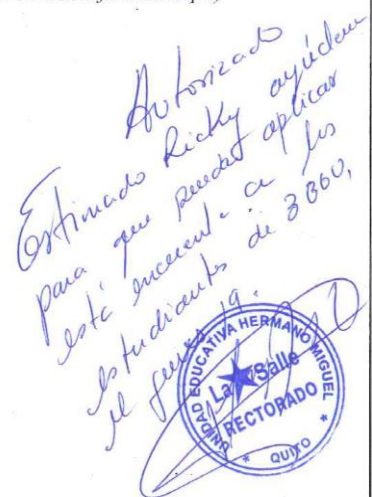 Autorizado
Estimado Ricky ayúdeme
para que puedan aplicar
está encuesta a los
estudiantes de 3 BGU,
el jueves 19.
UNIDAD EDUCATIVA HERMANO MIGUEL
La Salle
RECTORADO
* QUITO *